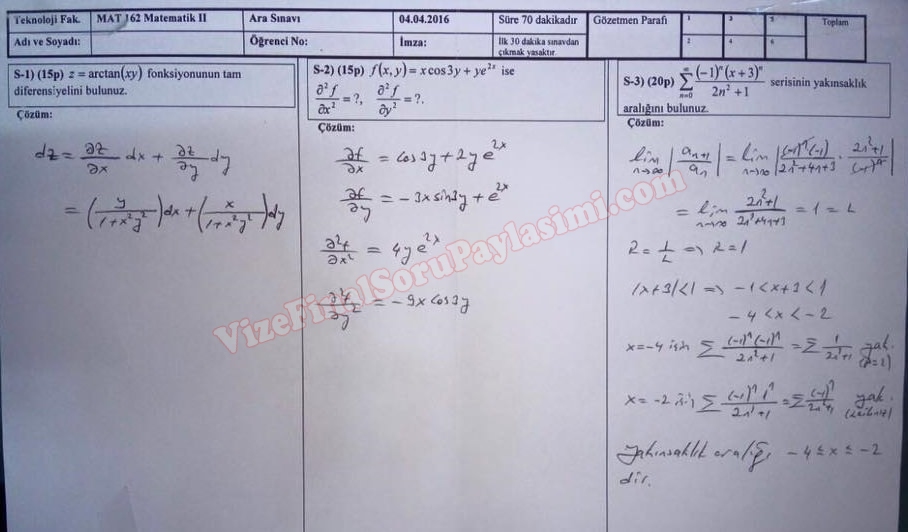 Teknoloji Fak. MAT 162 Matematik II Ara Sınavı 04.04.2016 Süre 70 dakikadır Gözetmen Parafı 1 3 5 Toplam
Adı ve Soyadı: Öğrenci No: İmza: İlk 30 dakika sınavdan çıkmak yasaktır. 2 4 6
S-1) (15p) z = arctan(xy) fonksiyonunun tam
diferensiyelini bulunuz.
Çözüm:
dz = ∂z/∂x dx + ∂z/∂y dy
= (y/(1+x²y²))dx + (x/(1+x²y²))dy
S-2) (15p) f(x,y) = x cos3y + ye^{2x} ise
∂²f/∂x² = ?, ∂²f/∂y² = ?.
Çözüm:
∂f/∂x = cos3y + 2ye^{2x}
∂f/∂y = -3x sin3y + e^{2x}
∂²f/∂x² = 4ye^{2x}
∂²f/∂y² = -9x cos3y
S-3) (20p) ∑_{n=0}^{∞} (-1)^n (x+3)^n / (2n²+1) serisinin yakınsaklık
aralığını bulunuz.
Çözüm:
lim_{n→∞} |a_{n+1}/a_n| = lim_{n→∞} |(-1)^n(-1)/(2n²+4n+3) · (2n²+1)/(-1)^n|
= lim_{n→∞} (2n²+1)/(2n²+4n+3) = 1 = L
R = 1/L ⇒ R = 1
|x+3|<1 ⇒ -1<x+3<1
-4 < x < -2
x=-4 için ∑ (-1)^n(-1)^n/(2n²+1) = ∑ 1/(2n²+1) yak.
x = -2 için ∑ (-1)^n 1^n/(2n²+1) = ∑ (-1)^n/(2n²+1) yak.
(Leibnitz)
Yakınsaklık aralığı -4 ≤ x ≤ -2
dir.
VizeFinalSoruPaylasimi.com